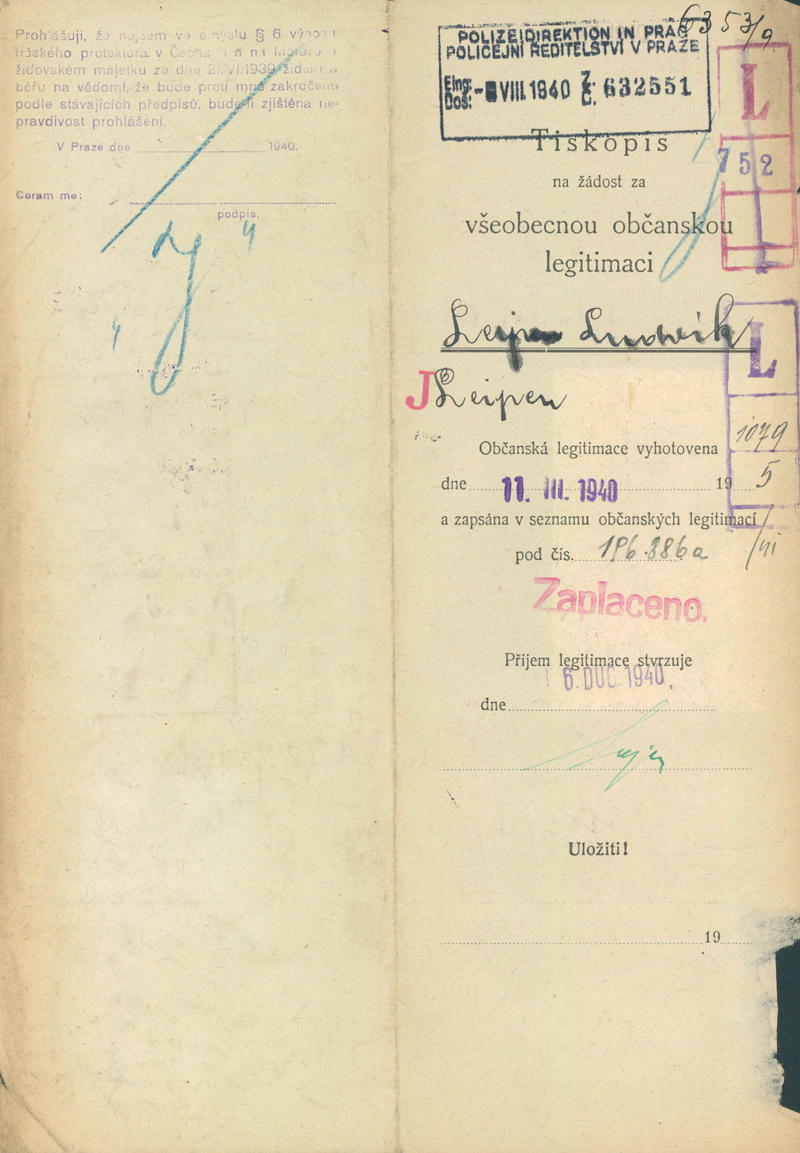 Prohlašuji, že nejsem ve smyslu § 6 výnosu
říšského protektora v Čechách a na Moravě o
židovském majetku ze dne 21.VI.1939 židem a
béřu na vědomí, že bude proti mně zakročeno
podle stávajících předpisů, bude-li zjištěna ne-
pravdivost prohlášení.
V Praze dne 1940.
Coram me:
podpis.
6353/9
POLIZEIDIREKTION IN PRAG
POLICEJNÍ ŘEDITELSTVÍ V PRAZE
Eing.
Doš. VIII.1940 Z. Č. 632551
L
752
Tiskopis
na žádost za
všeobecnou občanskou
legitimaci
Ludwik
L
J Leipen
1079
Občanská legitimace vyhotovena
dne 11. III. 1940 19
5
a zapsána v seznamu občanských legitimací
pod čís. 196.886a
Zaplaceno.
Příjem legitimace stvrzuje
6. 1940.
dne
Uložiti!
19